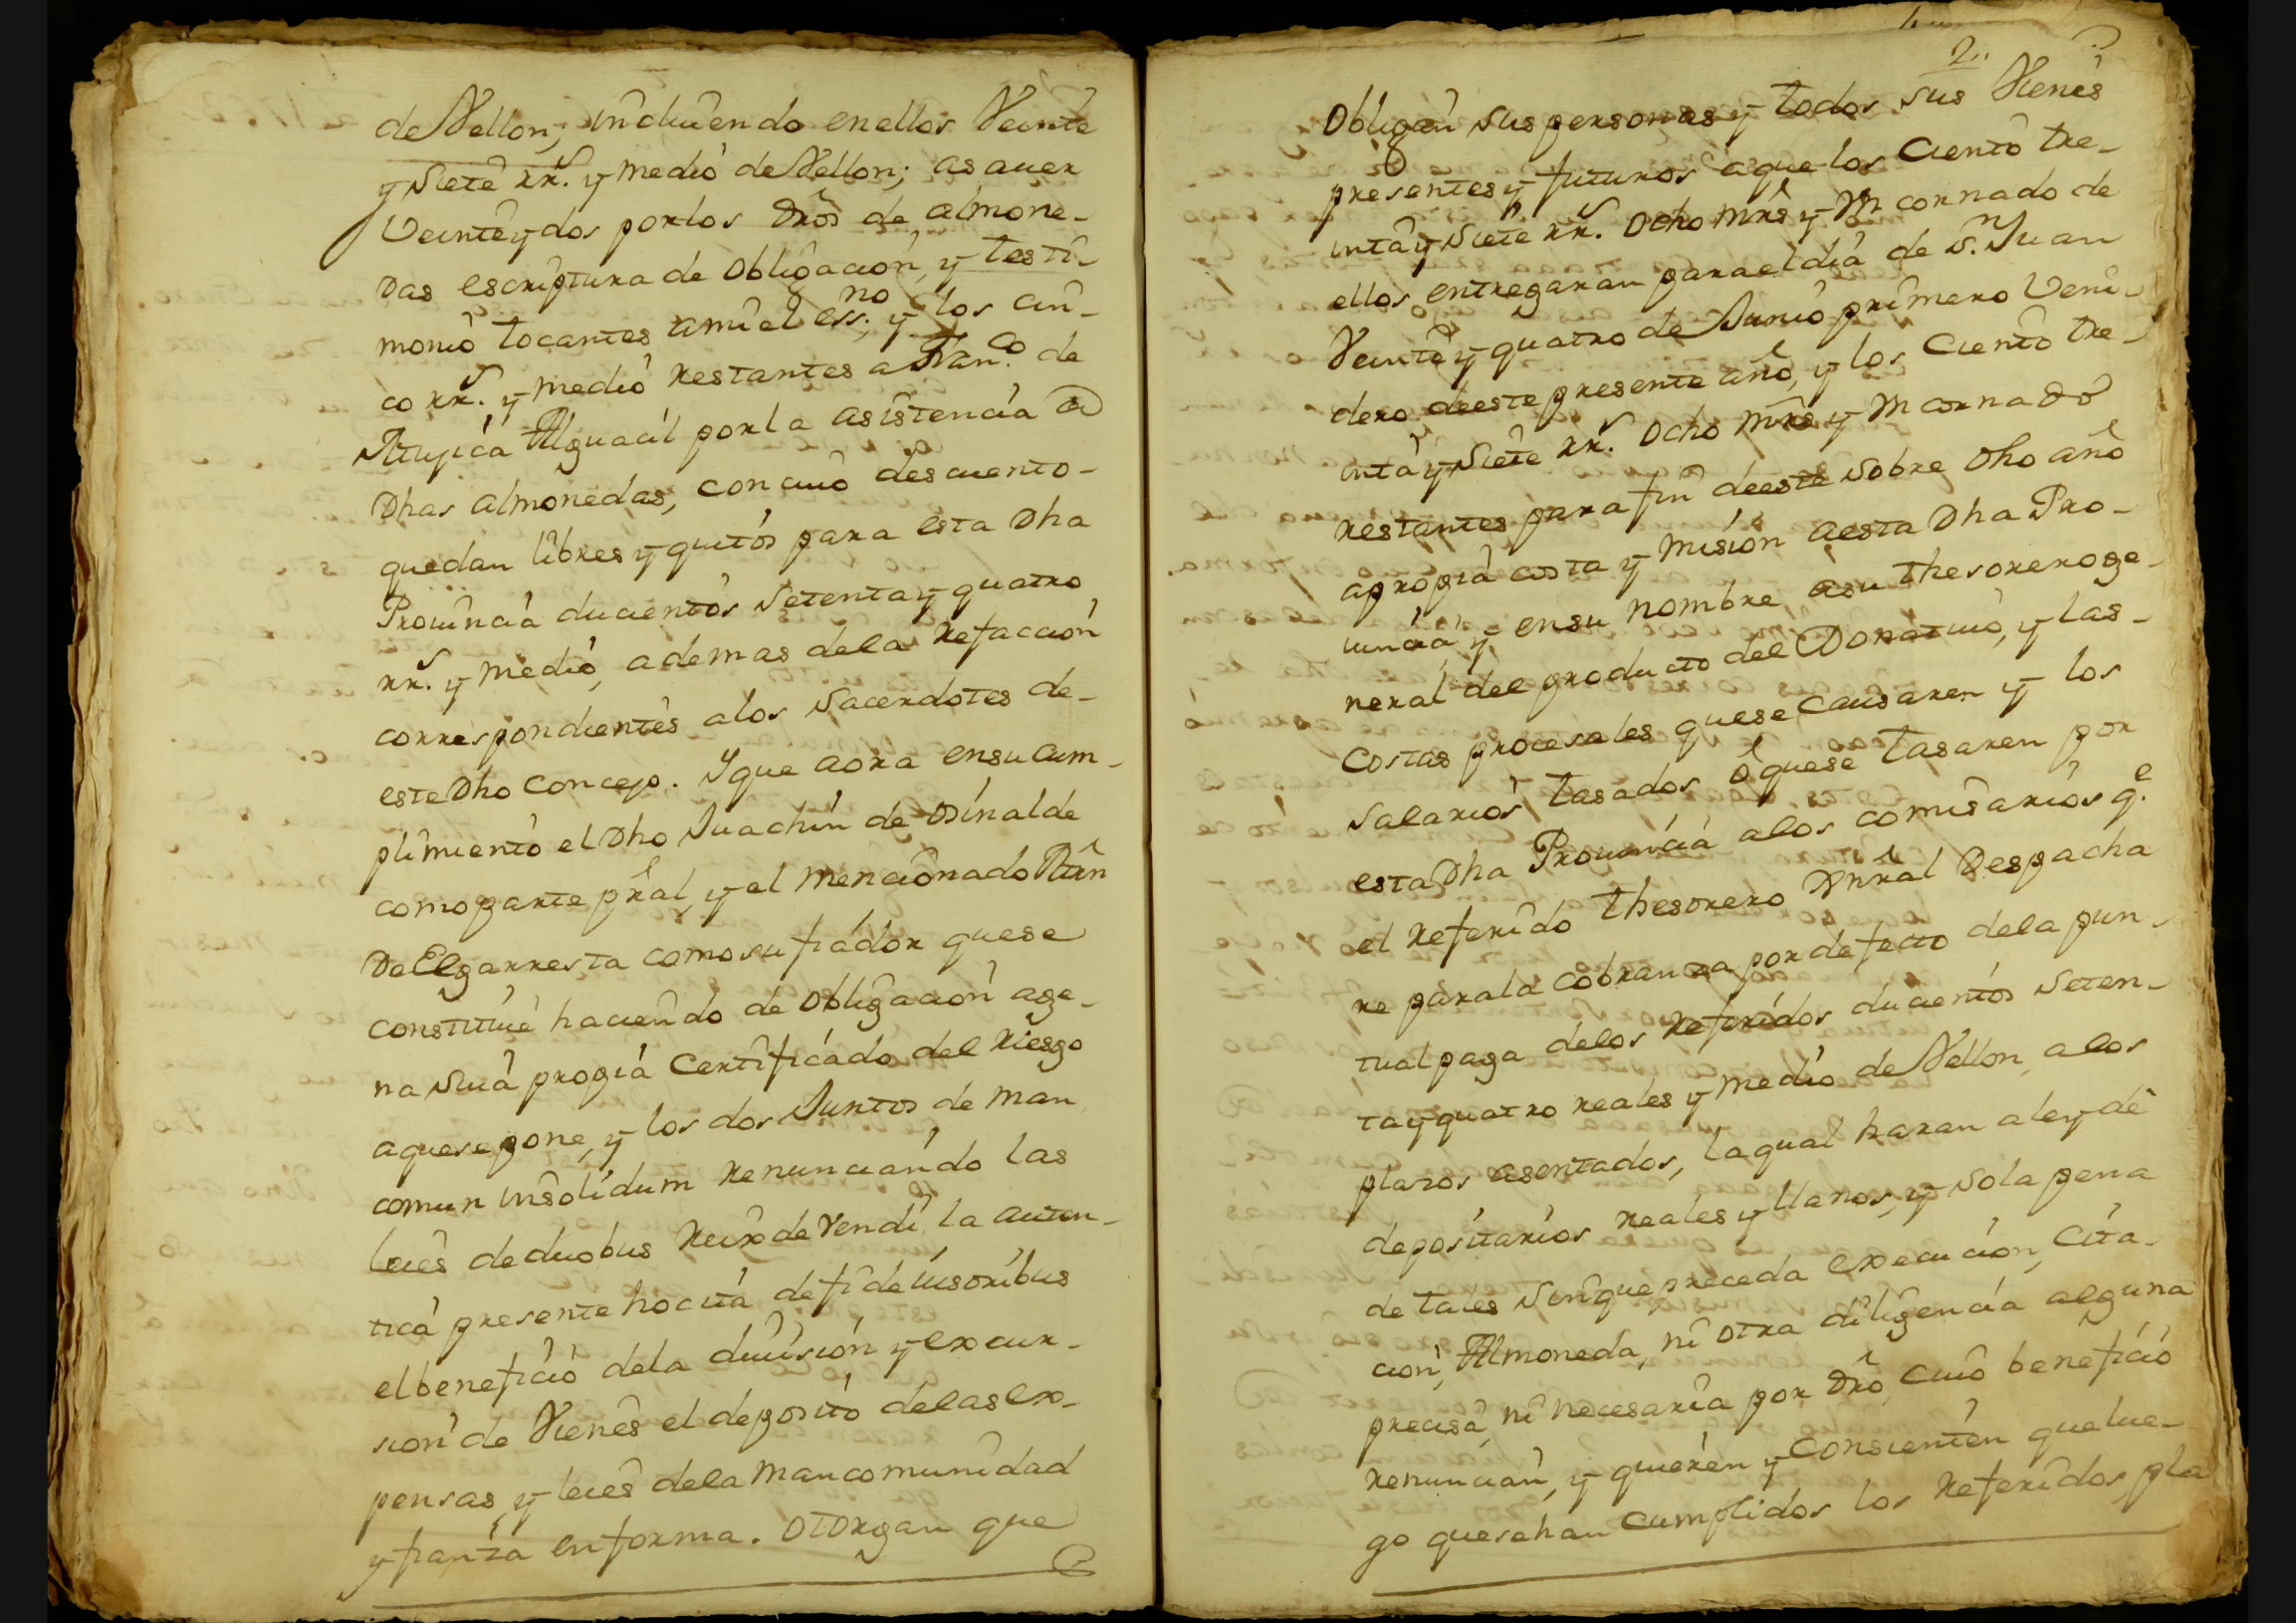 de Vellon; incluiendo en ellos Veinte
y Siete rr.s y medio de Vellon; as auer
Veinte y dos por los dros de almone-
das escriptura de Obligacion, y testi-
monio tocantes a mi el ess.no; y los cin-
co rr.s y medio restantes a Fran.co de
Alguacil por la asistencia a
Dhas almonedas, con cuio descuento-
quedan libres y quitos para esta Dha
Prouincia ducientos Setenta y quatro
rr.s y medio, ademas de la refaccion
correspondientes a los Sacerdotes de-
este Dho Concejo. Y que aora en su cum-
plimiento el Dho Juachin de Osinalde
como parte prãl, y el mencionado
De Elgarresta como su fiador que se
constituie haciendo de obligacion age-
na Suia propia Certificado del riesgo
a que se pone, y los dos Juntos de man
comun insolidum renunciando las
leies de duobus reix de vendi, la auten-
tica presente hocita de fideiusoribus
el beneficio de la diuision y excur-
sion de Vienes el deposito de las ex-
pensas, y leies de la mancomunidad
y fianza en forma. Otorgan que
2..
Obligan sus personas y todos sus Vienes
presentes y futuros a que los Ciento tre-
inta y Siete rr.s Ocho mrs y m cornado de
ellos entregaran para el dia de S.n Juan
Veinte y quatro de Junio primero Veni-
dero de este presente año, y los Ciento tre-
inta y Siete rr.s Ocho mrs y m cornado
restantes para fin de este sobre Dho año
a propia costa y mision a esta Dha Pro-
uincia y en su nombre, a su thesorero ge-
neral del producto del Donatiuo, y las-
Costas procesales que se Causaren y los
Salarios tasados, o que se tasaren por
esta Dha Prouincia a los comisarios q.e
el referido thesorero Gnral Despacha
re para la cobranza por defecto de la pun-
tual paga de los referidos ducientos Seten-
ta y quatro reales y medio de Vellon, a los
plazos asentados, la qual haran a ley de
depositarios reales y llanos, y so la pena
de tales sin que preceda execucion, Cita-
cion, Almoneda, ni otra diligencia alguna
precisa, ni necesaria por dro, cuio beneficio
renuncian, y quieren y Consienten que lue-
go que se han Cumplidos los referidos pla